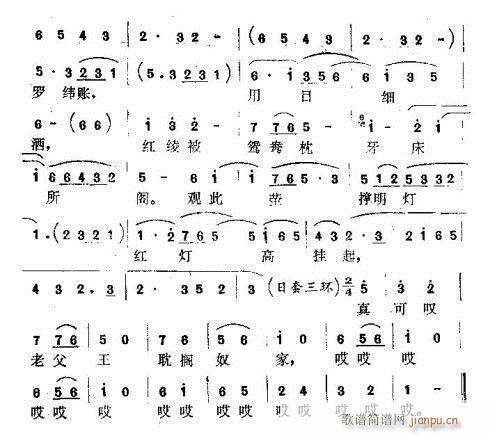 6 5 4 3 | 2 · 3 2 - | (6 5 4 3 | 2 · 3 2 -) |
5 · 3231 | (5 . 3231) | 6 · i 356 | 6 i 3 5 |
罗 纬账， 用 日 细
6 - (6 6) | i 3 2 - | 7 76 5 - | i - 2 i |
洒， 红绫被 鸳鸯枕 牙床
i 66432 | 5 - 6 i | 5 · i 765 · 3 | 5 125332 |
所 阁。观此 荧 撑明灯
1 . (2321) | i · 2765 | 5 i 6 5 | 4 3 2 · 3 2 i 6 5 |
红 灯 高 挂起，
4 3 2 . 3 | 2 · 3 5 2 3 | (日套三环) 2/4 5 | 3 2 |
真 可叹
7 76 | 5 0 | 7 76 | 5 5 | i 0 | 6 56 | i 0 |
老父 王 耽搁 奴 家， 哎哎 哎
6 56 | i 0 | 6 i | 6 5 | 2 4 | 3 2 | 1 - ‖
哎哎 哎 哎哎 哎哎 哎哎 哎哎 哎。
歌谱简谱网
jianpu.cn